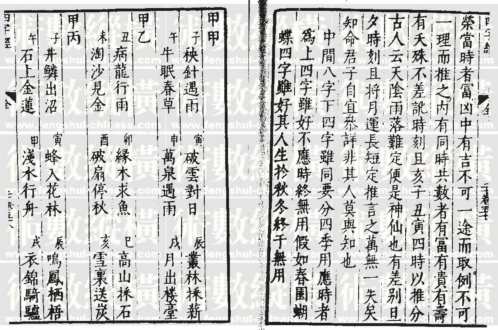 榮當時者富凶中有吉不可一途而取例不可
一理而推之內有同時共數者有富有貴有壽
有夭殊不差訛時刻且亥子丑寅四時以推分
古人云天陰雨落難定便是神仙也有差別旦
夕時刻且將月運長短定推言之萬無一失矣
知命君子自宜恭詳非其人莫與知也
中間八字下四字雖同要分四季用應時者
爲上四字雖好不應時終無用假如春園蝴
蝶四字雖好其人生於秋冬終于無用
甲甲
子 秧針遇雨 寅 破雲對日 辰 叢林採薪
午 牛眠春草 申 萬泉遇雨 戌 月出樓臺
甲乙
丑 病龍行雨 卯 緣木求魚 巳 高山採石
未 淘沙見金 酉 破扇停秋 亥 雪裏送炭
甲丙
子 井鱗出沼 寅 蜂入花林 辰 鳴鳳棲梧
午 石上金蓮 申 淺水行舟 戌 衣錦騎驢
四字經